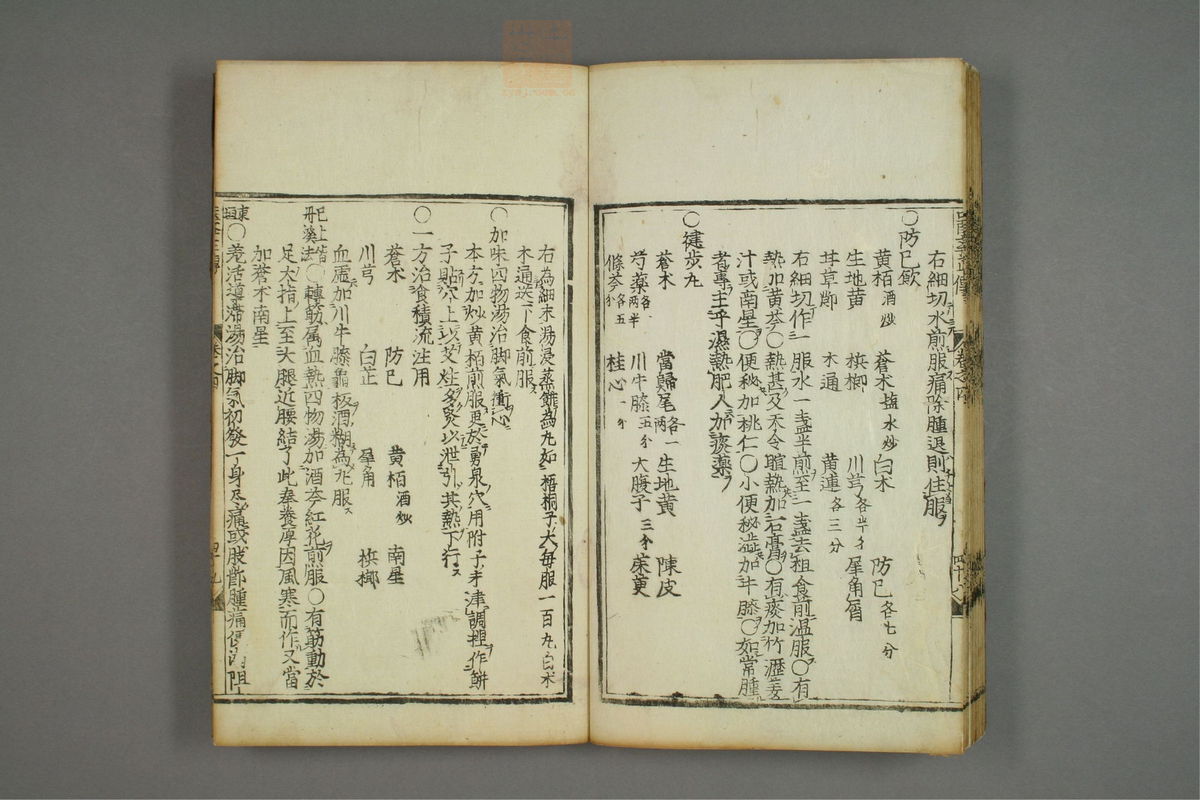 右細切水煎服痛除腫退則住服
〇防已飲
黄栢酒炒 蒼朮塩水炒 白朮 防已各七分
生地黄 檳榔 川芎各半分 犀角屑
甘草梢 木通 黄連各三分
右細切作一服水一盞半煎至一盞去粗食前温服〇有
熱加黄芩〇熱甚及天令暄熱加石膏〇有痰加竹瀝姜
汁或南星〇便秘加桃仁〇小便秘澁加牛膝〇如常腫
者專主乎濕熱肥人加痰藥
〇健歩丸
蒼木 當歸尾各一両 生地黄 陳皮
芍藥各両半 川牛膝五分 大腹子三分 茱萸
條芩各五分 桂心一分
右為細末湯浸蒸餅為丸如梧桐子大毎服一百丸白朮
木通送下食前服
〇加味四物湯治脚氣衝心
本方加炒黄栢煎服更於湧泉穴用附子末津調揑作餅
子貼穴上以艾炷多炙以泄引其熱下行
〇一方治食積流注用
蒼朮 防已 黄栢酒炒 南星
川芎 白芷 犀角 檳榔
血虚加川牛膝龜板酒糊為丸服
已上皆丹溪法〇轉筋属血熱四物湯加酒芩紅花煎服〇有筋動於
足大指上至大腿近腰結了此奉養厚因風寒而作又當
加蒼朮南星
東垣〇羌活導滯湯治脚氣初發一身尽痛或肢節腫痛便阻